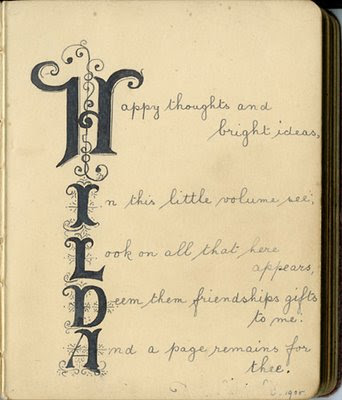 Happy thoughts and
bright ideas,
In this little volume see,
Look on all that here
appears,
Deem them friendships gifts
to me.
And a page remains for
thee.
1905